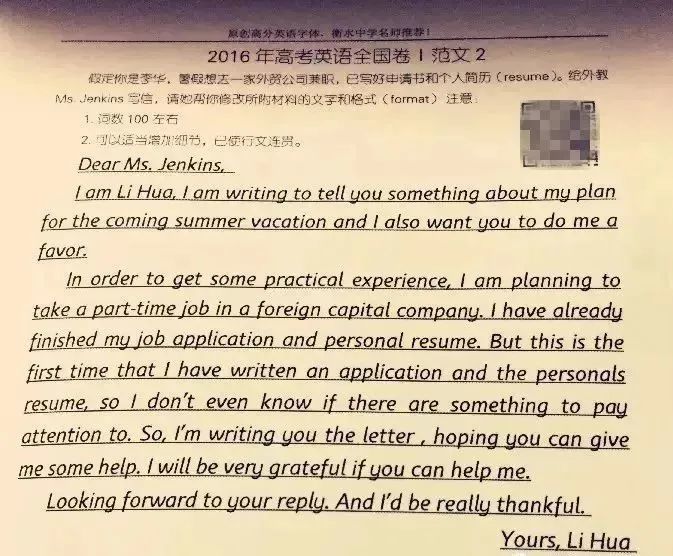 原创高分英语字体，衡水中学名师推荐！
2016 年高考英语全国卷 I 范文 2
假定你是李华，暑假想去一家外贸公司兼职，已写好申请书和个人简历（resume）。给外教
Ms. Jenkins 写信，请她帮你修改所附材料的文字和格式（format）注意：
1. 词数 100 左右
2. 可以适当增加细节，已使行文连贯。
Dear Ms. Jenkins,
I am Li Hua, I am writing to tell you something about my plan
for the coming summer vacation and I also want you to do me a
favor.
In order to get some practical experience, I am planning to
take a part-time job in a foreign capital company. I have already
finished my job application and personal resume. But this is the
first time that I have written an application and the personals
resume, so I don't even know if there are something to pay
attention to. So, I'm writing you the letter , hoping you can give
me some help. I will be very grateful if you can help me.
Looking forward to your reply. And I'd be really thankful.
Yours, Li Hua